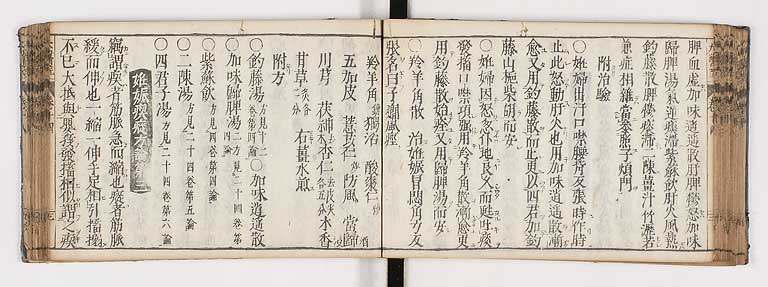 脾血虛加味逍遙散肝脾鬱怒加味
歸脾湯氣逆痰滯紫蘇飲肝火風熱
鈎藤散脾鬱痰滯二陳薑汁竹瀝若
兼症相雜當參照子煩門
附治驗
〇姙婦出汗口噤腰背反張時作時
止此怒動肝火也用加味逍遙散漸
愈又用鈎藤散而止更以四君加鈎
藤山梔柴胡而安
〇一姙婦因怒忽仆地良久而甦吐痰
發搐口噤項強用羚羊角散漸愈更
用鈎藤散始痊又用歸脾湯而安
〇羚羊角散 治姙娠冒悶角弓反
張名曰子癇風痙
羚羊角 獨活 酸棗仁
五加皮 薏苡仁 防風 當歸
川芎 茯神 杏仁 木香
甘草 右薑水煎
附方
〇鈎藤湯 〇加味逍遙散
〇加味歸脾湯 方見二十四卷第
〇紫蘇飲方見二十四卷第五論
〇二陳湯方見二十四卷第四論
〇四君子湯方見二十四卷第六論
姙娠瘈瘲
竊謂瘈者筋脈急而縮也瘲者筋脈
緩而伸也一縮一伸手足相引搐搦
不已大抵與嬰孩發搐相似謂之瘈